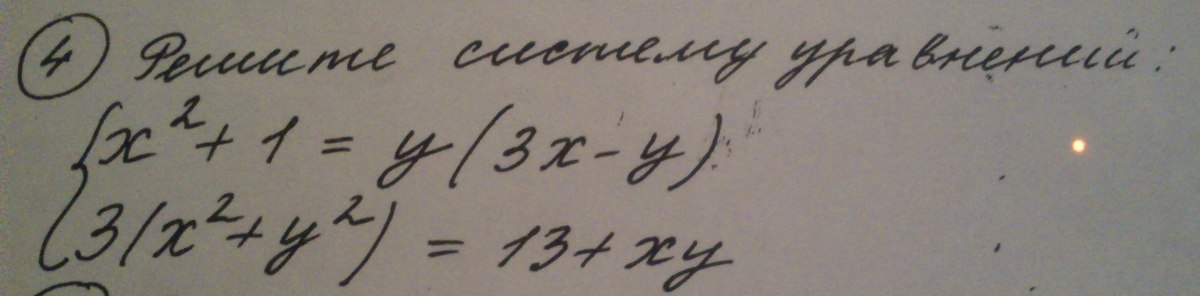 4 Решите систему уравнений:
x² + 1 = y(3x - y)
3(x² + y²) = 13 + xy